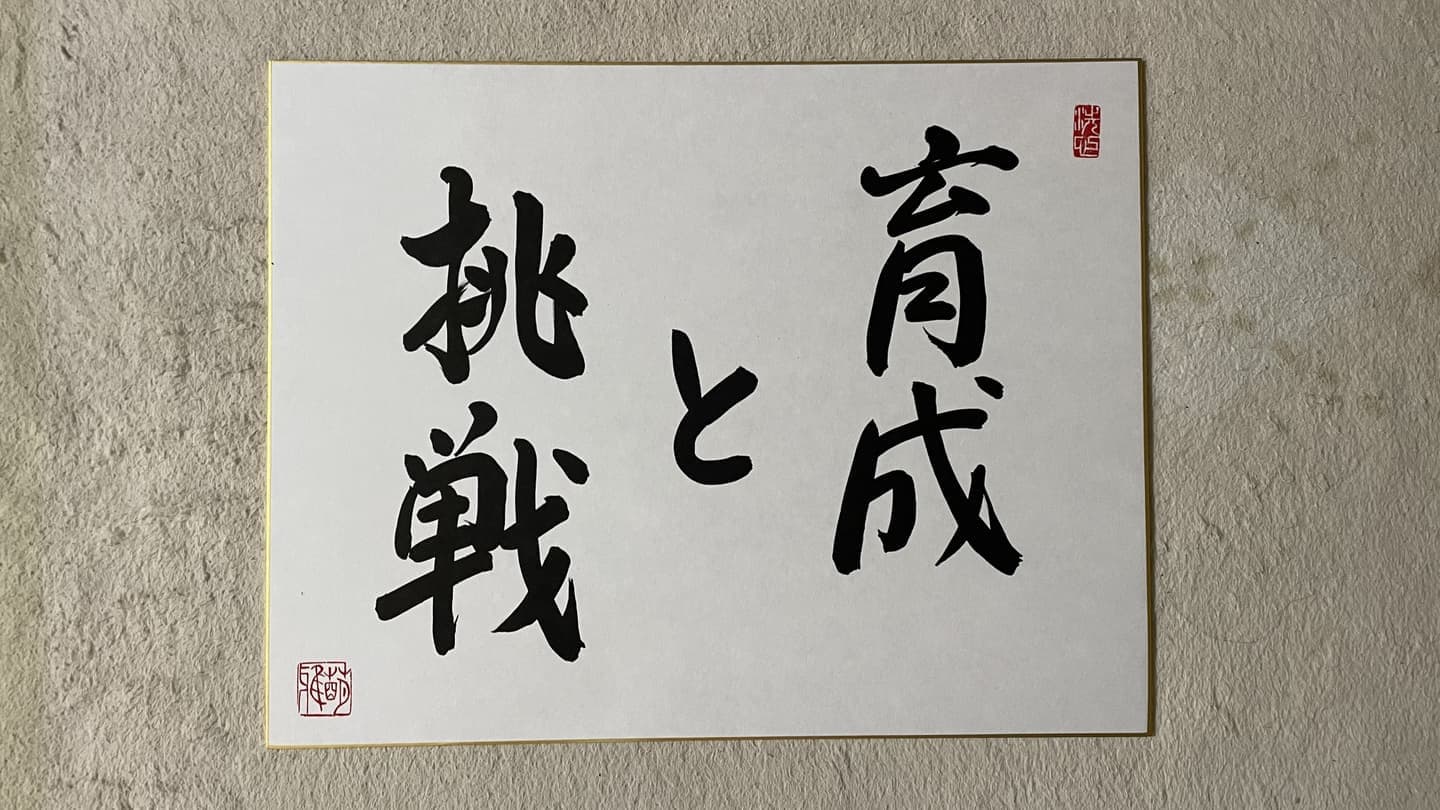 育成
と
挑戦